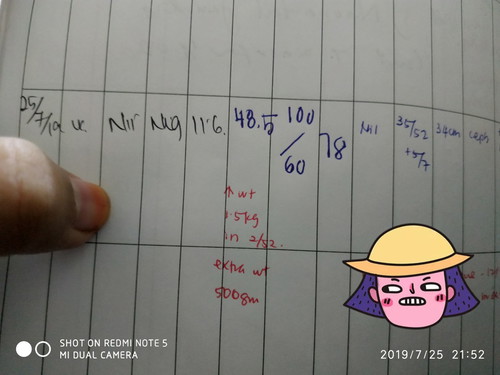 25/7/19 Nil Neg 11.6. 48.5 100/60 78 Nil 35/52 +5/7 34cm ceph
↑ wt
1.5kg
in 2/52.
extra wt
500gm
SHOT ON REDMI NOTE 5
MI DUAL CAMERA
2019/7/25 21:52